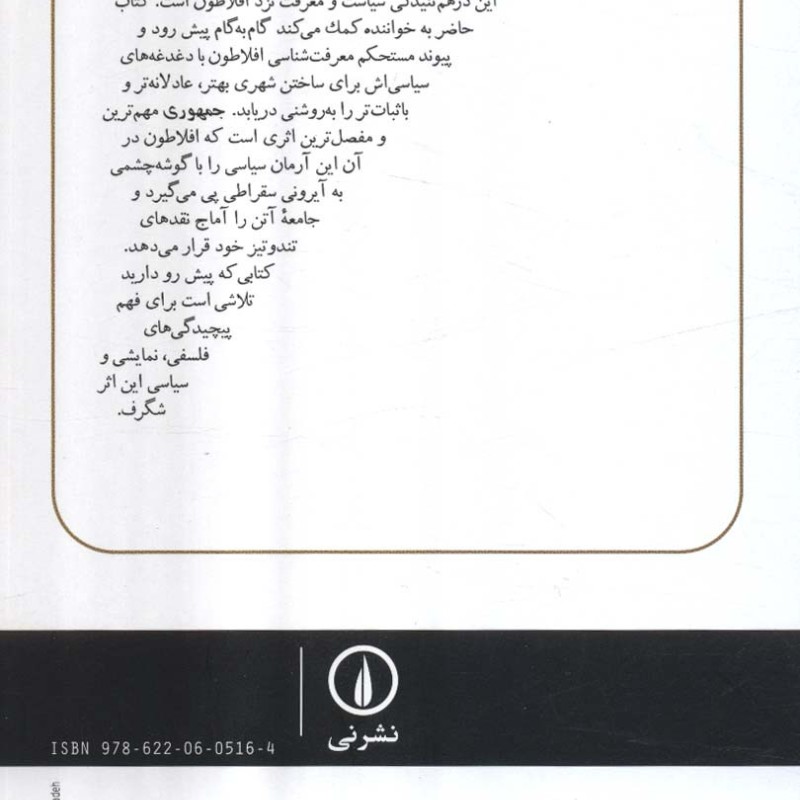 این درهم‌تنیدگی سیاست و معرفت نزد افلاطون است. کتاب
حاضر به خواننده کمك می‌کند گام‌به‌گام پیش رود و
پیوند مستحکم معرفت‌شناسی افلاطون با دغدغه‌های
سیاسی‌اش برای ساختن شهری بهتر، عادلانه‌تر و
باثبات‌تر را به‌روشنی دریابد. جمهوری مهم‌ترین
و مفصل‌ترین اثری است که افلاطون در
آن این آرمان سیاسی را با گوشه‌چشمی
به آیرونیِ سقراطی پی می‌گیرد و
جامعهٔ آتن را آماج نقدهای
تندوتیز خود قرار می‌دهد.
کتابی که پیش رو دارید
تلاشی است برای فهم
پیچیدگی‌های
فلسفی، نمایشی و
سیاسی این اثر
شگرف.
نشرنی
ISBN 978-622-06-0516-4